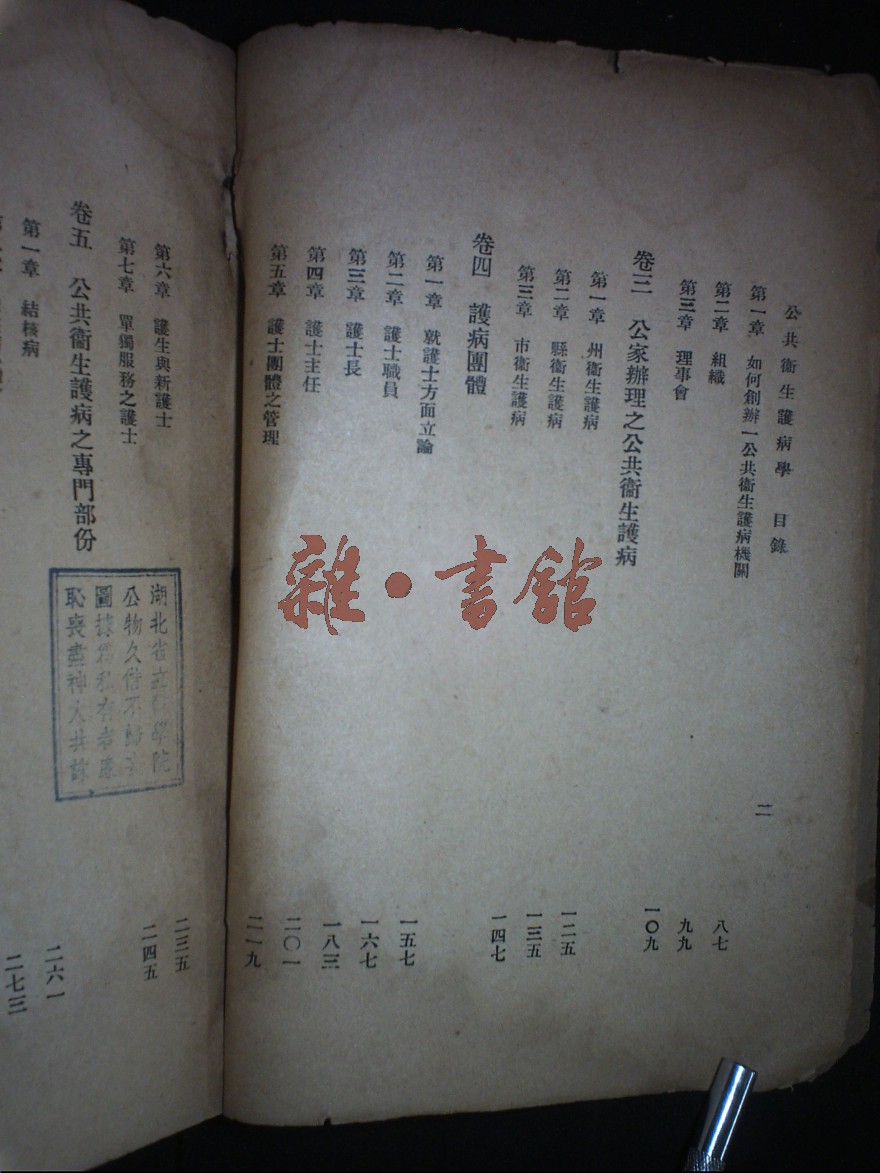 公共衞生護病學 目錄
二
第一章 如何創辦一公共衞生護病機關 八七
第二章 組織 九九
第三章 理事會 一〇九
卷三 公家辦理之公共衞生護病
第一章 州衞生護病 一二五
第二章 縣衞生護病 一三五
第三章 市衞生護病 一四七
卷四 護病團體
第一章 就護士方面立論 一五七
第二章 護士職員 一六七
第三章 護士長 一八三
第四章 護士主任 二〇一
第五章 護士團體之管理 二一九
第六章 護生與新護士 二三五
第七章 單獨服務之護士 二四五
卷五 公共衞生護病之專門部份
第一章 結核病 二六一
二七三
湖北省立醫學院
公物久借不歸意
圖據爲私有者廉
恥喪盡神人共誅
雜·書館